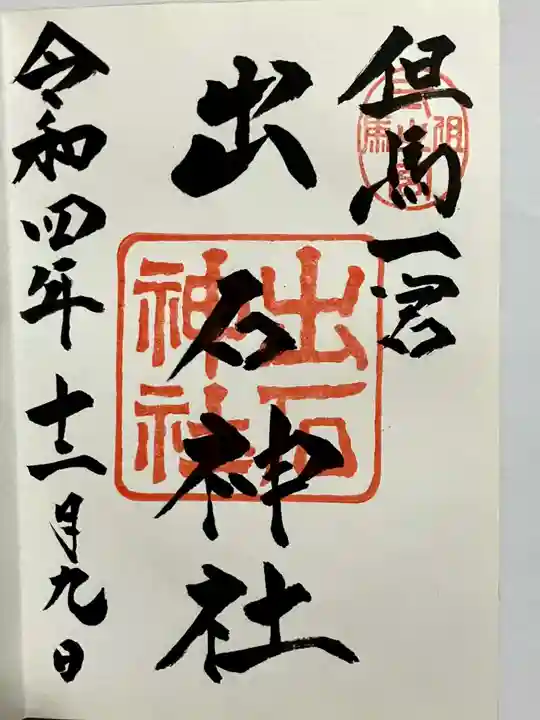 但馬一宮
出石神社
出石
神社
令和四年十二月九日